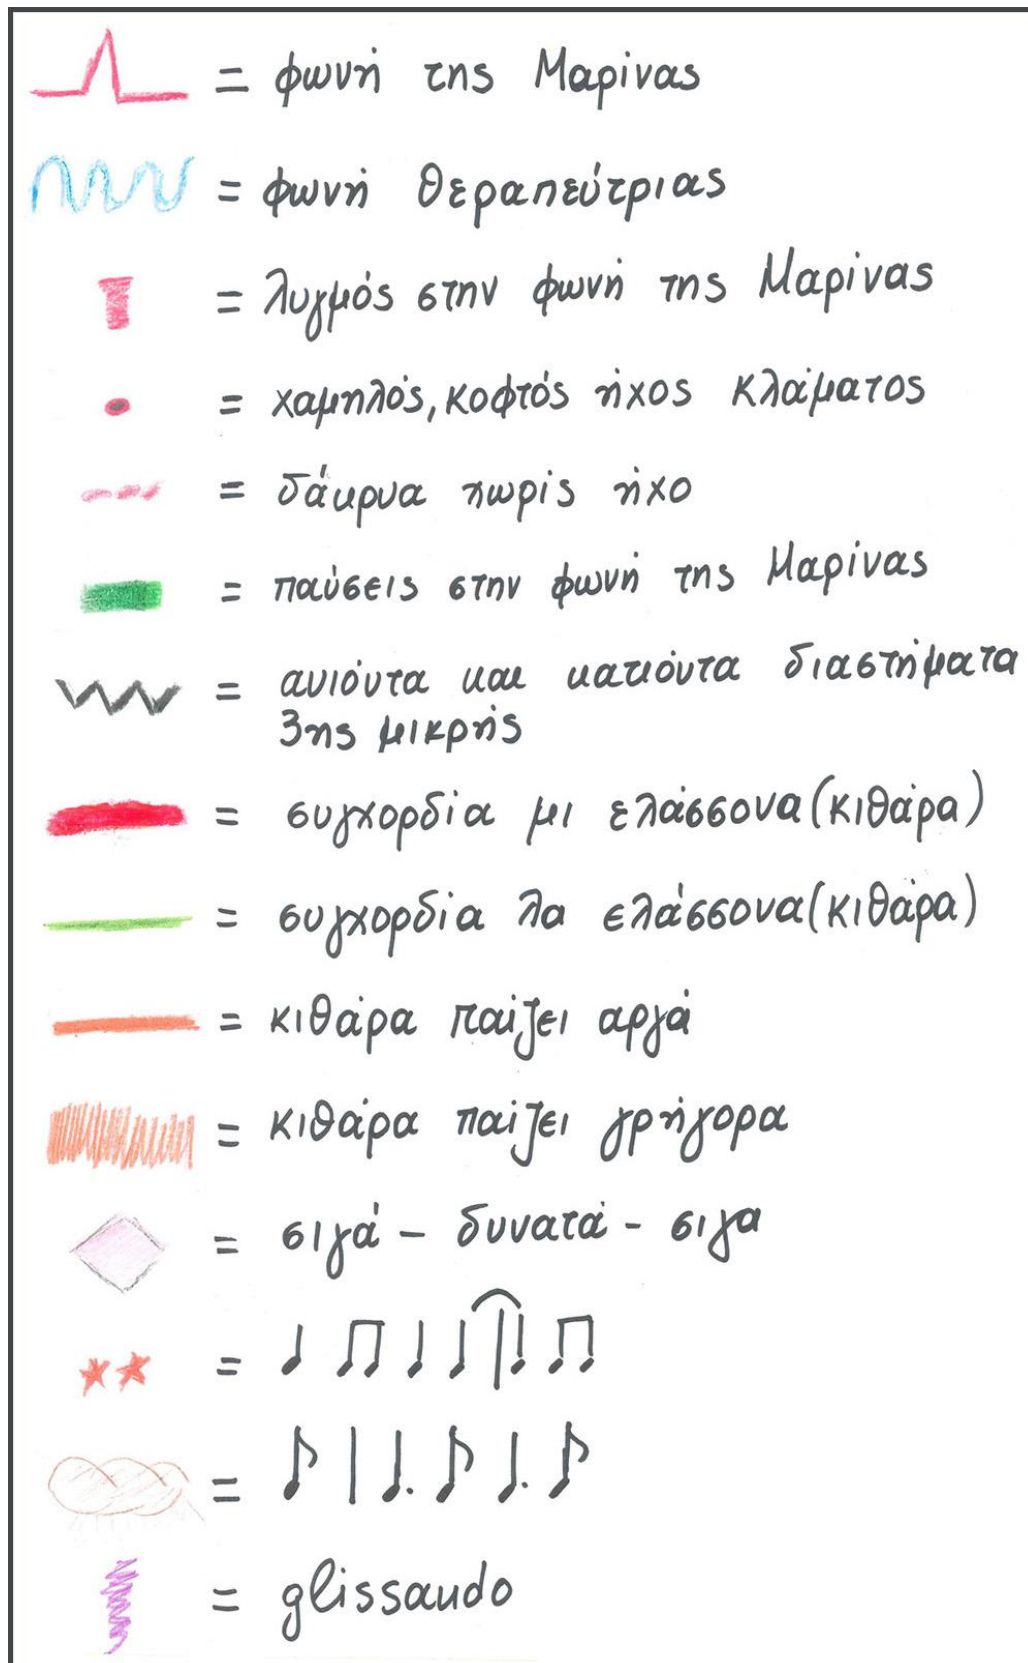 = φωνή της Μαρίνας
= φωνή θεραπεύτριας
= λυγμός στην φωνή της Μαρίνας
= χαμηλός, κοφτός ήχος κλάματος
= δάκρυα χωρίς ήχο
= παύσεις στην φωνή της Μαρίνας
= ανιόντα και κατιόντα διαστήματα
3ης μικρής
= συγχορδία μι ελάσσονα (κιθάρα)
= συγχορδία λα ελάσσονα (κιθάρα)
= κιθάρα παίζει αργά
= κιθάρα παίζει γρήγορα
= σιγά - δυνατά - σιγα
=
=
= glissando